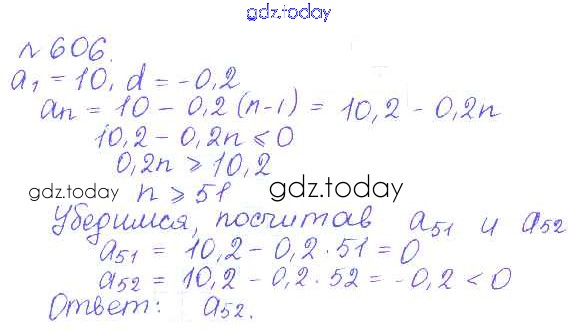 gdz.today
№ 606.
a₁ = 10, d = -0,2
an = 10 - 0,2 (n-1) = 10,2 - 0,2n
10,2 - 0,2n ⩽ 0
0,2n ⩾ 10,2
gdz.today n ⩾ 51 gdz.today
Убедимся, посчитав a₅₁ и a₅₂
a₅₁ = 10,2 - 0,2 · 51 = 0
a₅₂ = 10,2 - 0,2 · 52 = -0,2 < 0
Ответ: a₅₂.